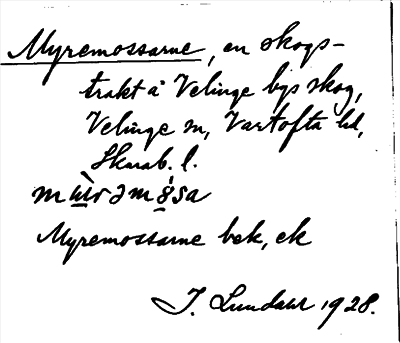 Myremossarne, en skogs-
trakt å Velinge bys skog,
Velinge sn, Vartofta hd,
Skarab. l.
Myremossarne bek, ek
J. Lundahl 1928.